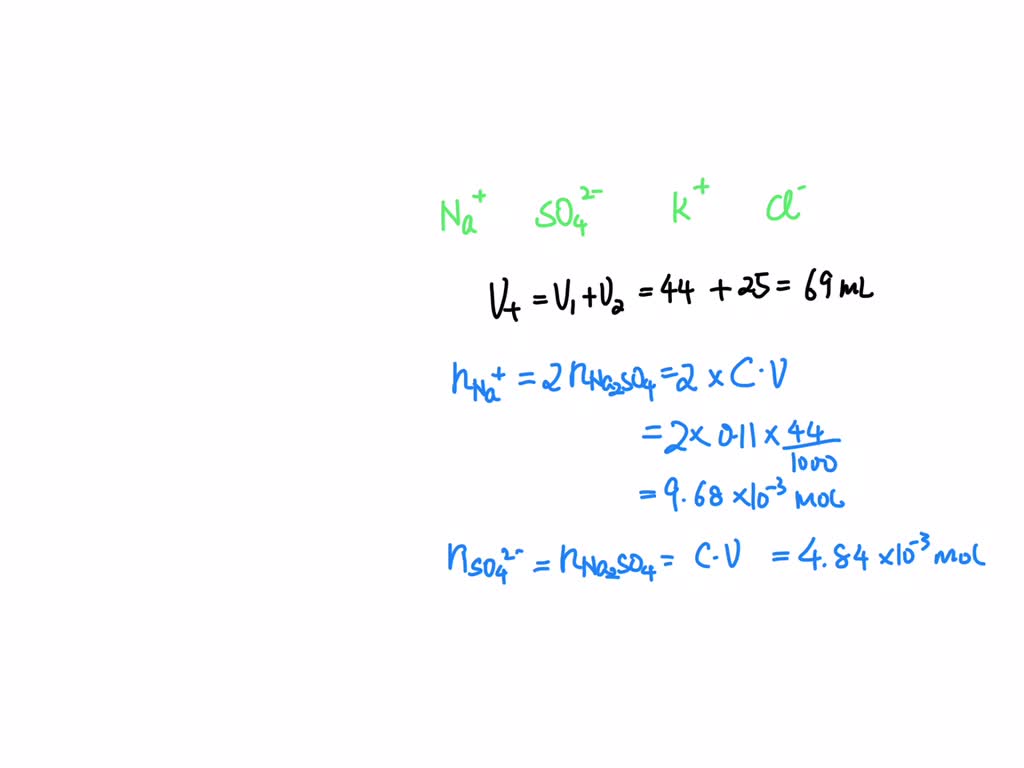 Na⁺ SO₄²⁻ K⁺ Cl⁻
V₊ = V₁ + V₂ = 44 + 25 = 69 mL
n_Na⁺ = 2 n_Na₂SO₄ = 2 × C·V
= 2 × 0.11 × 44/1000
= 9.68 × 10⁻³ mol
n_SO₄²⁻ = n_Na₂SO₄ = C·V = 4.84 × 10⁻³ mol